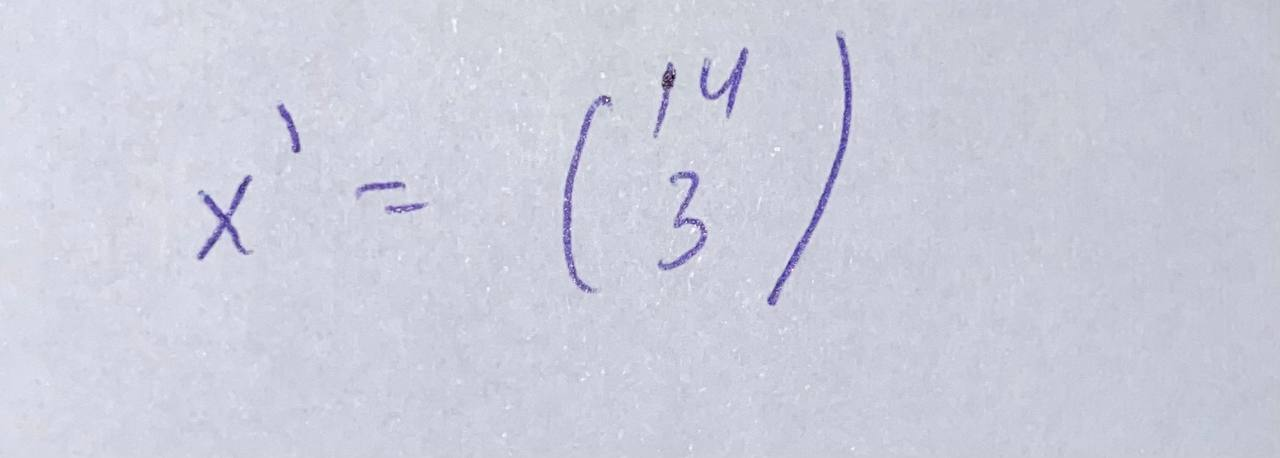 x' = (14
3)